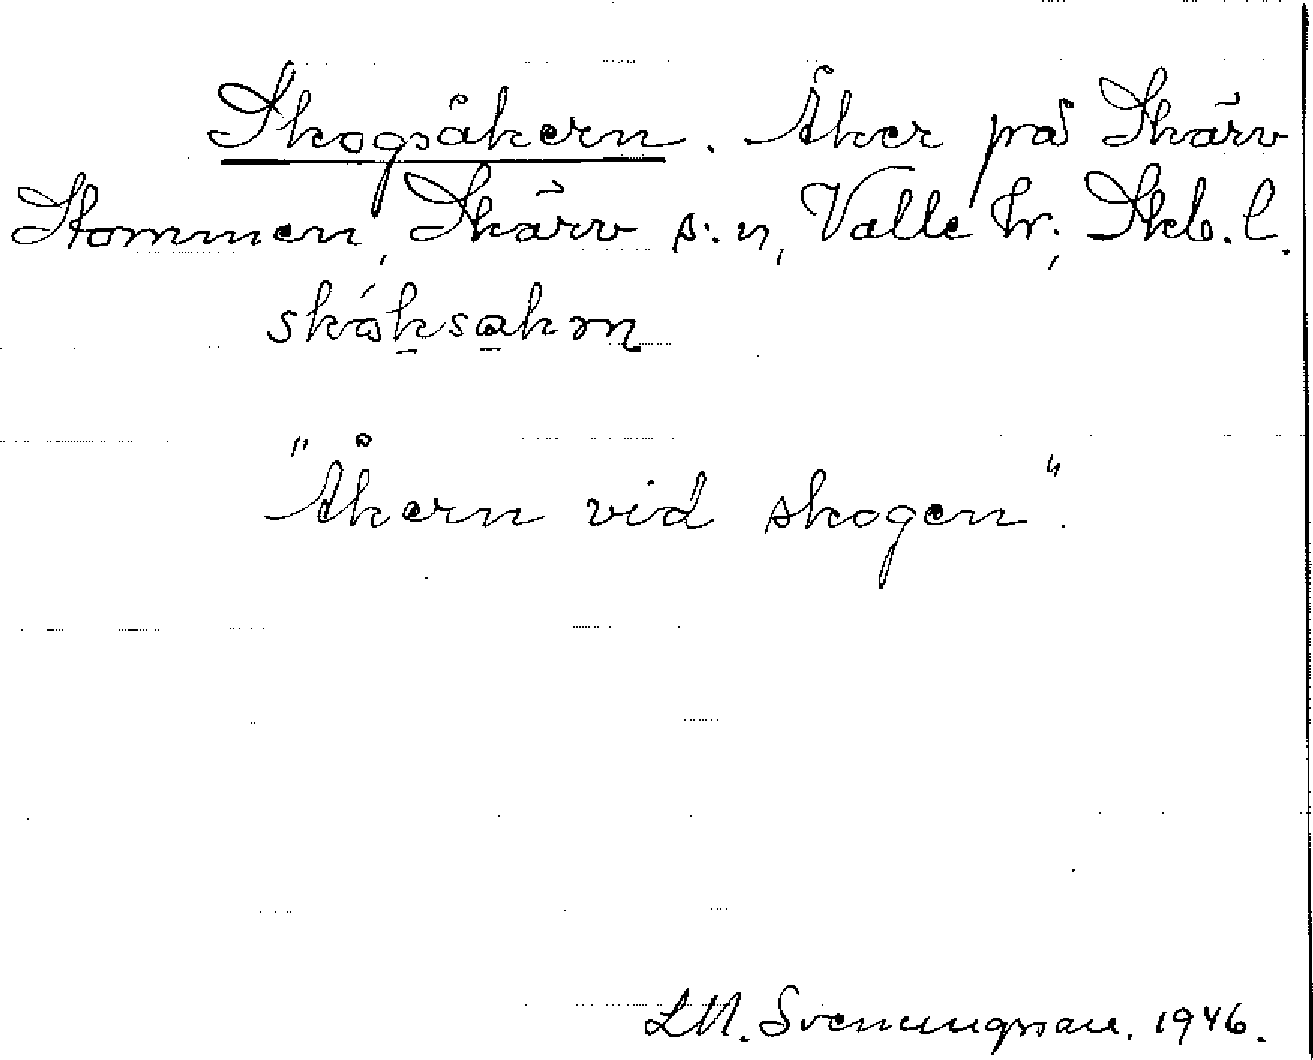 Skogsåkern. Åker på Skärv
Stommen, Skärv s:n, Valle hr; Skb. l.
skåksakrn
"Åkern vid skogen".
L.M. Svenungsson. 1946.